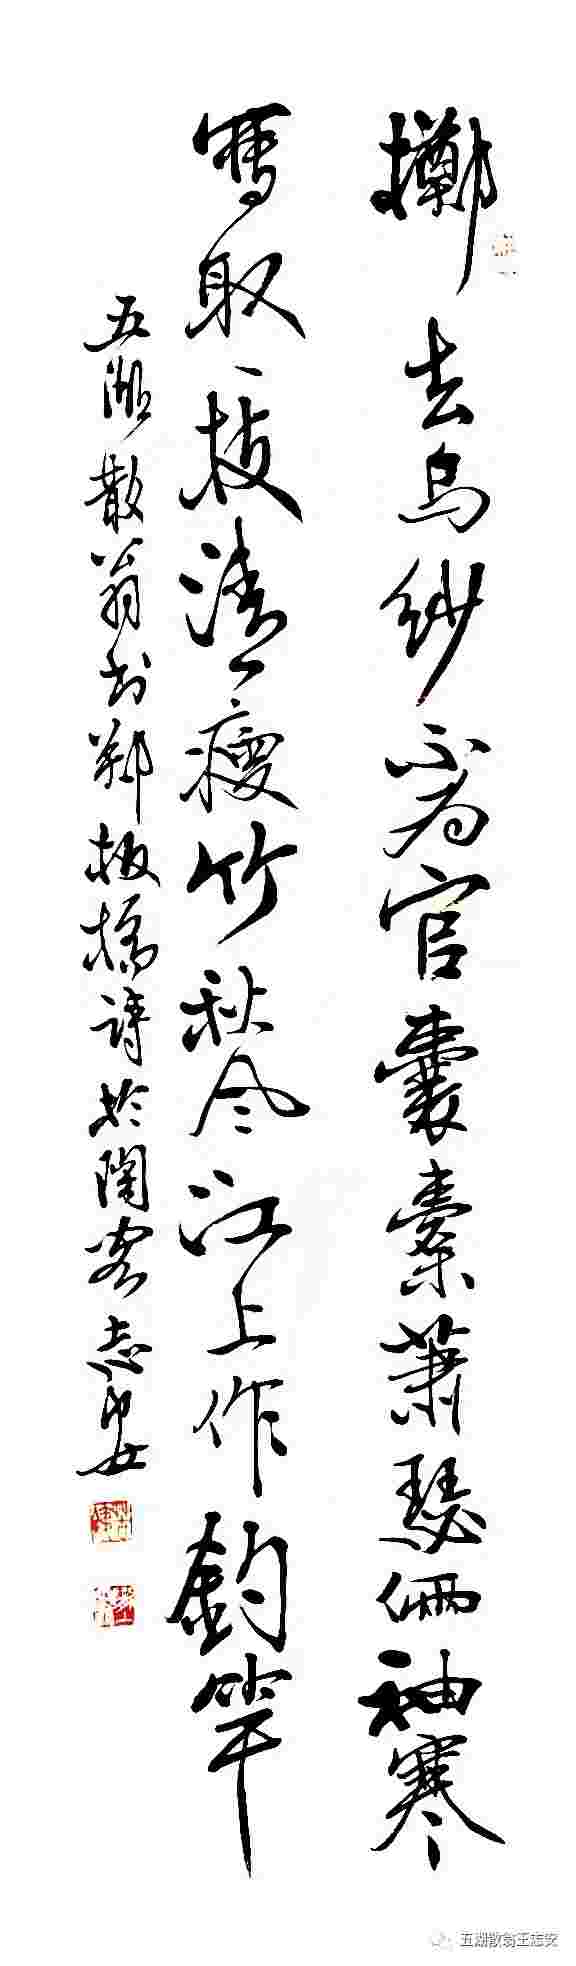 擲去烏紗不為官囊橐蕭瑟倆袖寒
寫取一枝清瘦竹秋風江上作釣竿
五湖散翁書鄭板橋詩於陶客志安
五湖散翁王志安